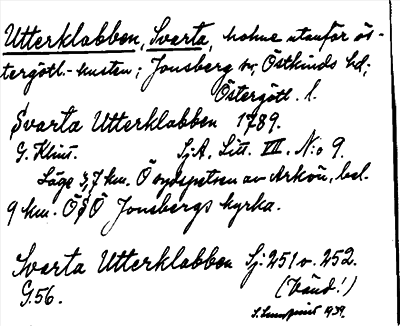 Utterklabben, Svarta, holme utanför ös-
tergötl.-kusten; Jonsberg sn, Östkinds hd;
Östergötl. l.
Svarta Utterklabben 1789.
G. Klint. SjA. Litt. VII. N:o 9.
Läge 3,7 km. Ö sydspetsen av Arkön, bel.
9 km. ÖSÖ Jonsbergs kyrka.
Svarta Utterklabben Sj: 251 o. 252.
G.56. (Vänd!)
1939.